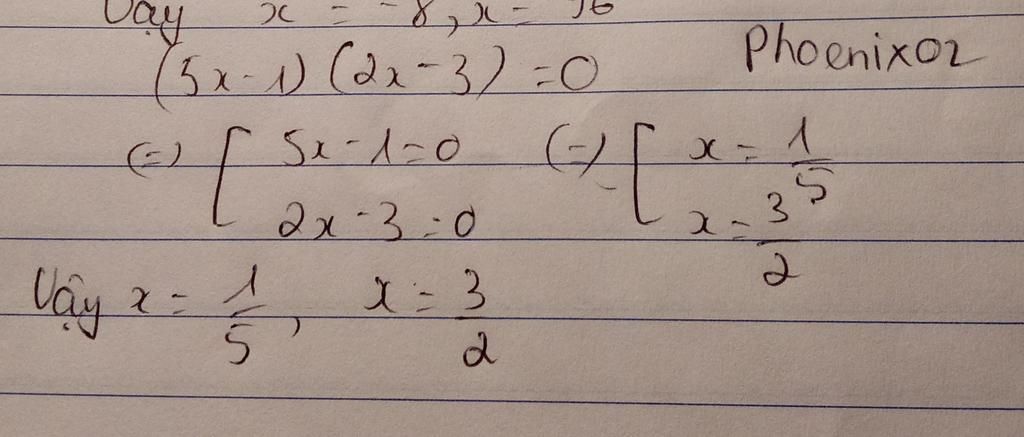 Vậy x = -8, x = 16
(5x-1) (2x-3) = 0 Phoenix02
(=) [ 5x-1=0 (=) [ x = 1/5
2x-3=0 x = 3/2
Vậy x = 1/5, x = 3/2